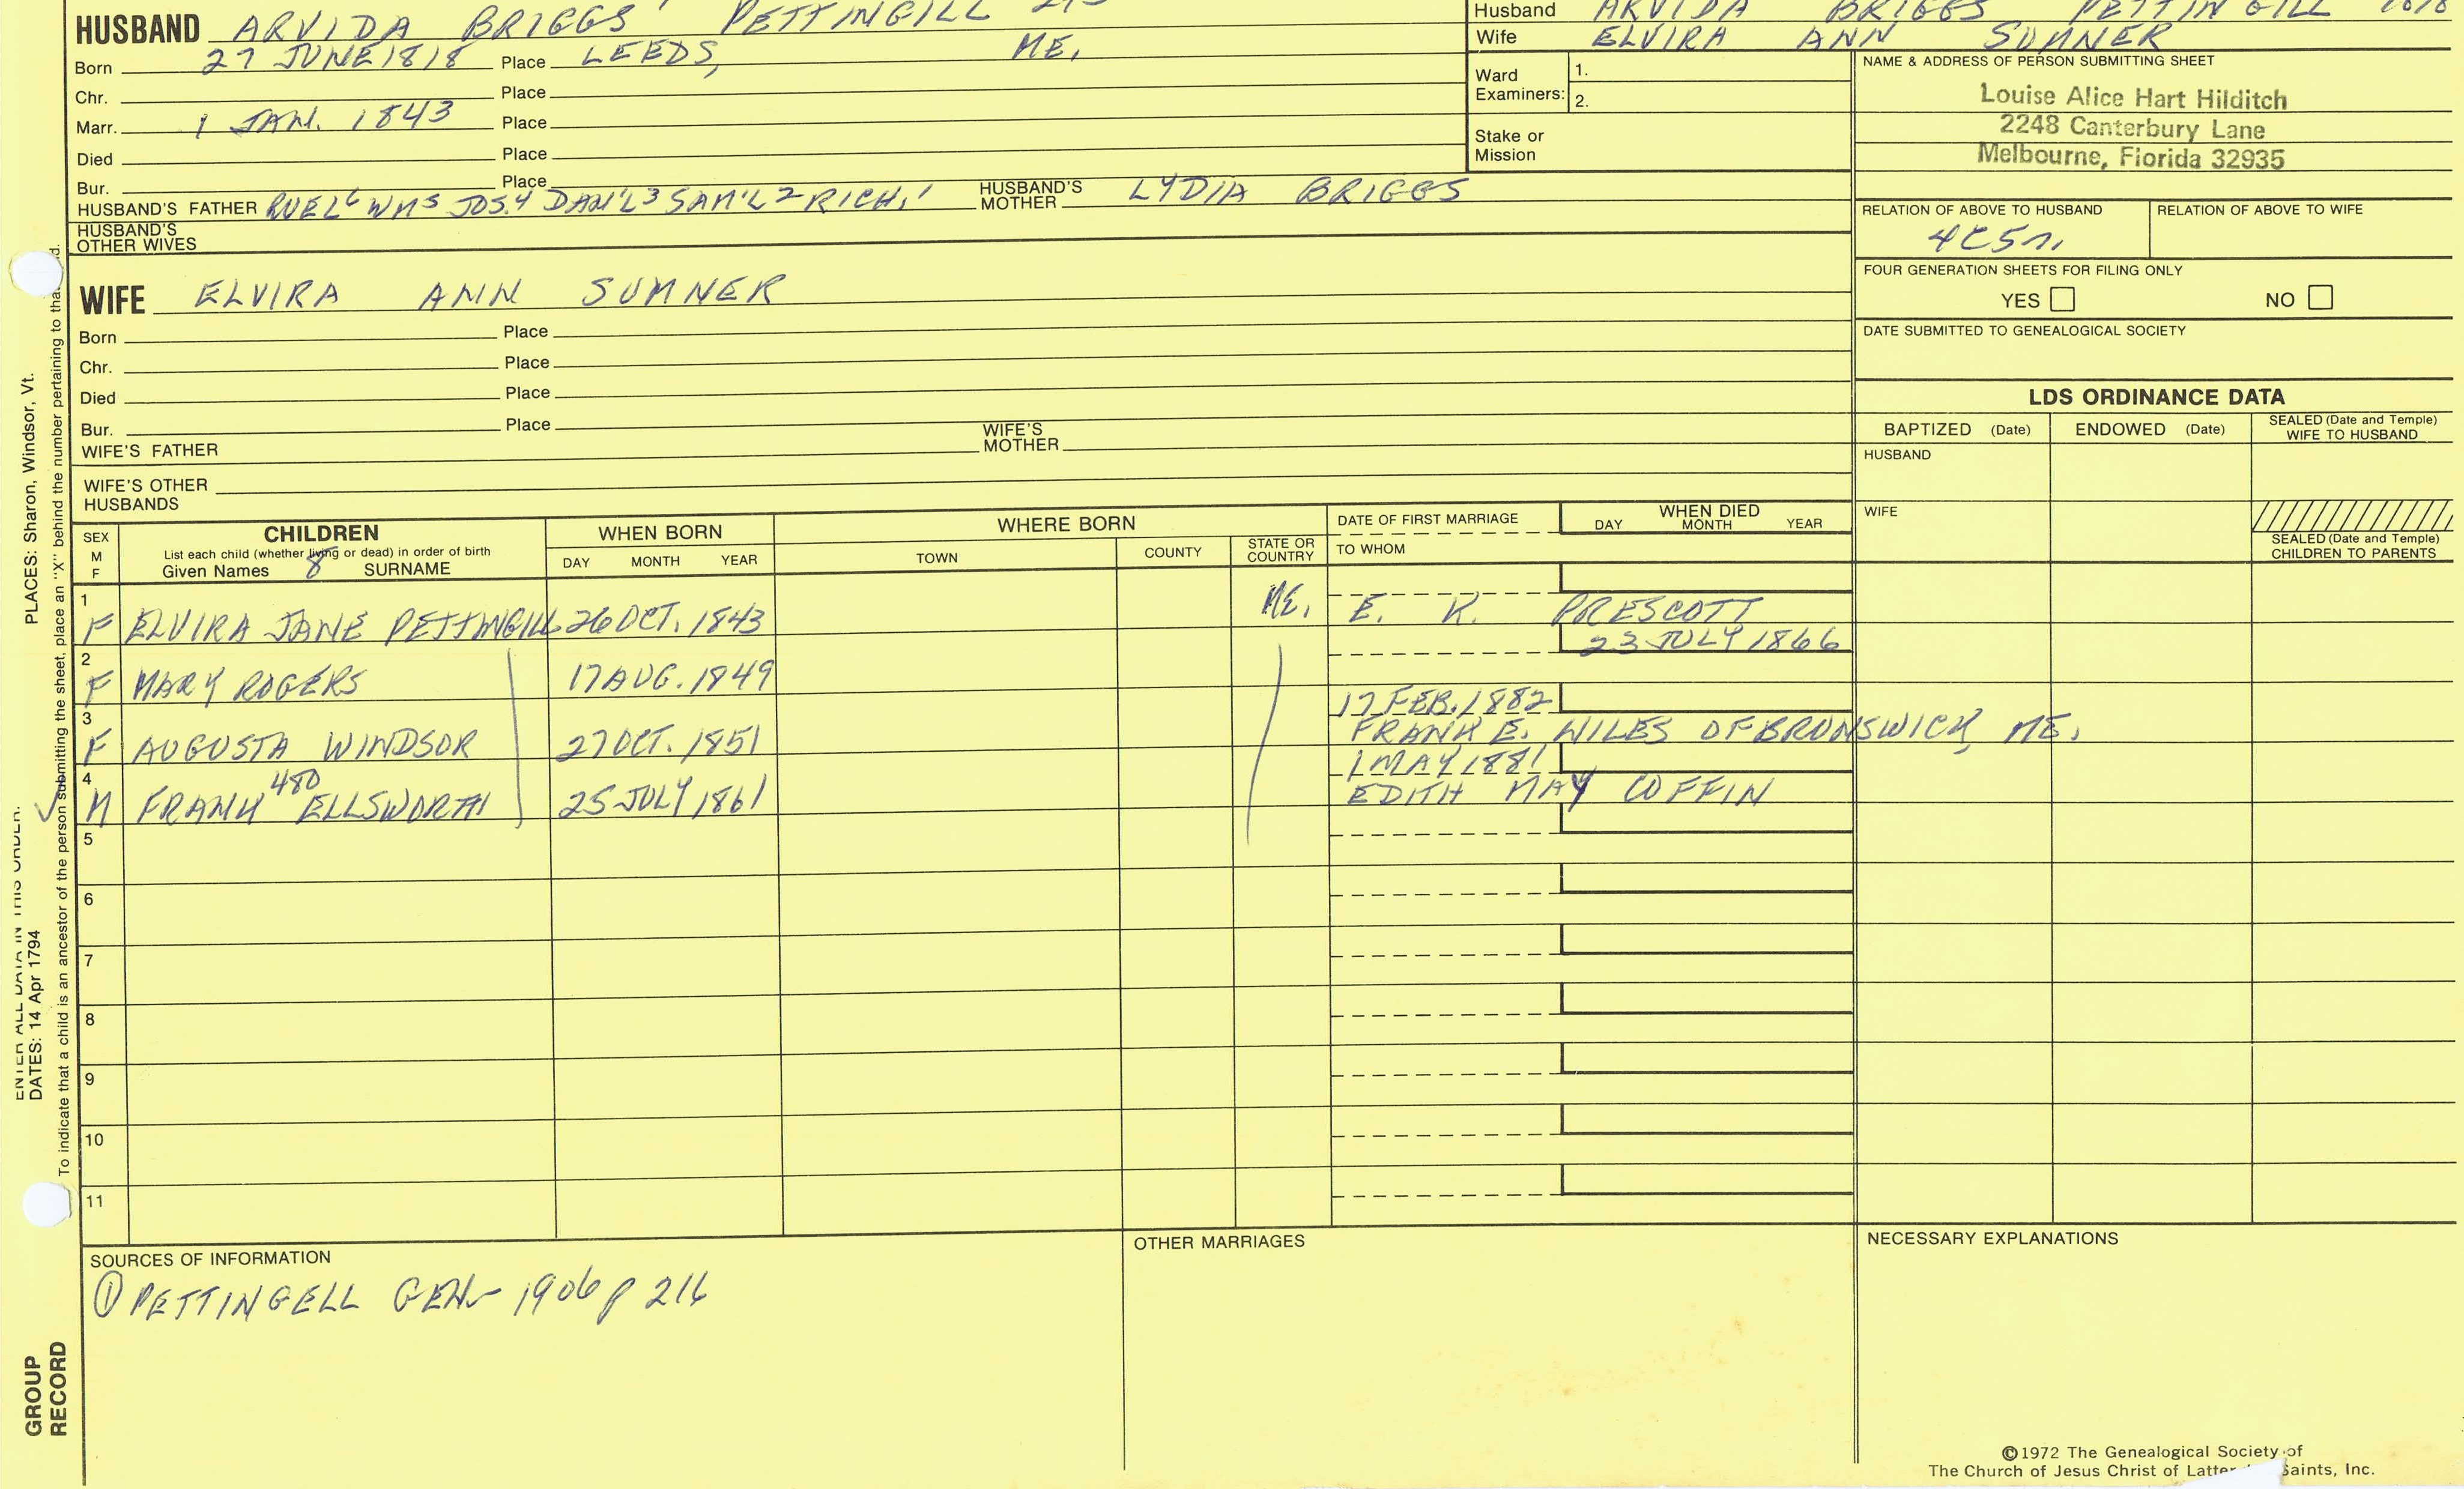 HUSBAND ARVIDA BRIGGS 7 PETTINGILL
Born 27 JUNE 1818 Place LEEDS, ME.
Chr. Place
Marr. 1 JAN. 1843 Place
Died Place
Bur. Place
HUSBAND'S FATHER RUEL6 WM5 JOS.4 DAN'L3 SAM'L2 RICH.1 HUSBAND'S MOTHER LYDIA BRIGGS
HUSBAND'S
OTHER WIVES
Husband ARVIDA BRIGGS PETTINGILL 1818
Wife ELVIRA ANN SUMNER
Ward
Examiners:
1.
2.
Stake or
Mission
NAME & ADDRESS OF PERSON SUBMITTING SHEET
Louise Alice Hart Hilditch
2248 Canterbury Lane
Melbourne, Florida 32935
RELATION OF ABOVE TO HUSBAND RELATION OF ABOVE TO WIFE
4C5r.
FOUR GENERATION SHEETS FOR FILING ONLY
YES NO
DATE SUBMITTED TO GENEALOGICAL SOCIETY
WIFE ELVIRA ANN SUMNER
Born Place
Chr. Place
Died Place
Bur. Place
WIFE'S FATHER WIFE'S MOTHER
WIFE'S OTHER
HUSBANDS
LDS ORDINANCE DATA
BAPTIZED (Date) ENDOWED (Date) SEALED (Date and Temple) WIFE TO HUSBAND
HUSBAND
WIFE
SEALED (Date and Temple)
CHILDREN TO PARENTS
SEX
M
F
CHILDREN
List each child (whether living or dead) in order of birth
Given Names 8 SURNAME
WHEN BORN
DAY MONTH YEAR
WHERE BORN
TOWN COUNTY STATE OR COUNTRY
DATE OF FIRST MARRIAGE
TO WHOM
WHEN DIED
DAY MONTH YEAR
1
F ELVIRA JANE PETTINGILL 26 OCT. 1843 ME. E. K. PRESCOTT
2 23 JULY 1866
F MARY ROGERS 17 AUG. 1849
3 17 FEB. 1882
F AUGUSTA WINDSOR 27 OCT. 1851 FRANK E. WILES OF BRUNSWICK, ME.
4 480 1 MAY 1881
M FRANK ELLSWORTH 25 JULY 1861 EDITH MAY COFFIN
5
6
7
8
9
10
11
SOURCES OF INFORMATION
① PETTINGELL GEN 1906 p 216
OTHER MARRIAGES
NECESSARY EXPLANATIONS
©1972 The Genealogical Society of
The Church of Jesus Christ of Latter Saints, Inc.
PLACES: Sharon, Windsor, Vt.
ENTER ALL DATA IN THIS ORDER:
DATES: 14 Apr 1794
To indicate that a child is an ancestor of the person submitting the sheet, place an "X" behind the number pertaining to that
GROUP
RECORD